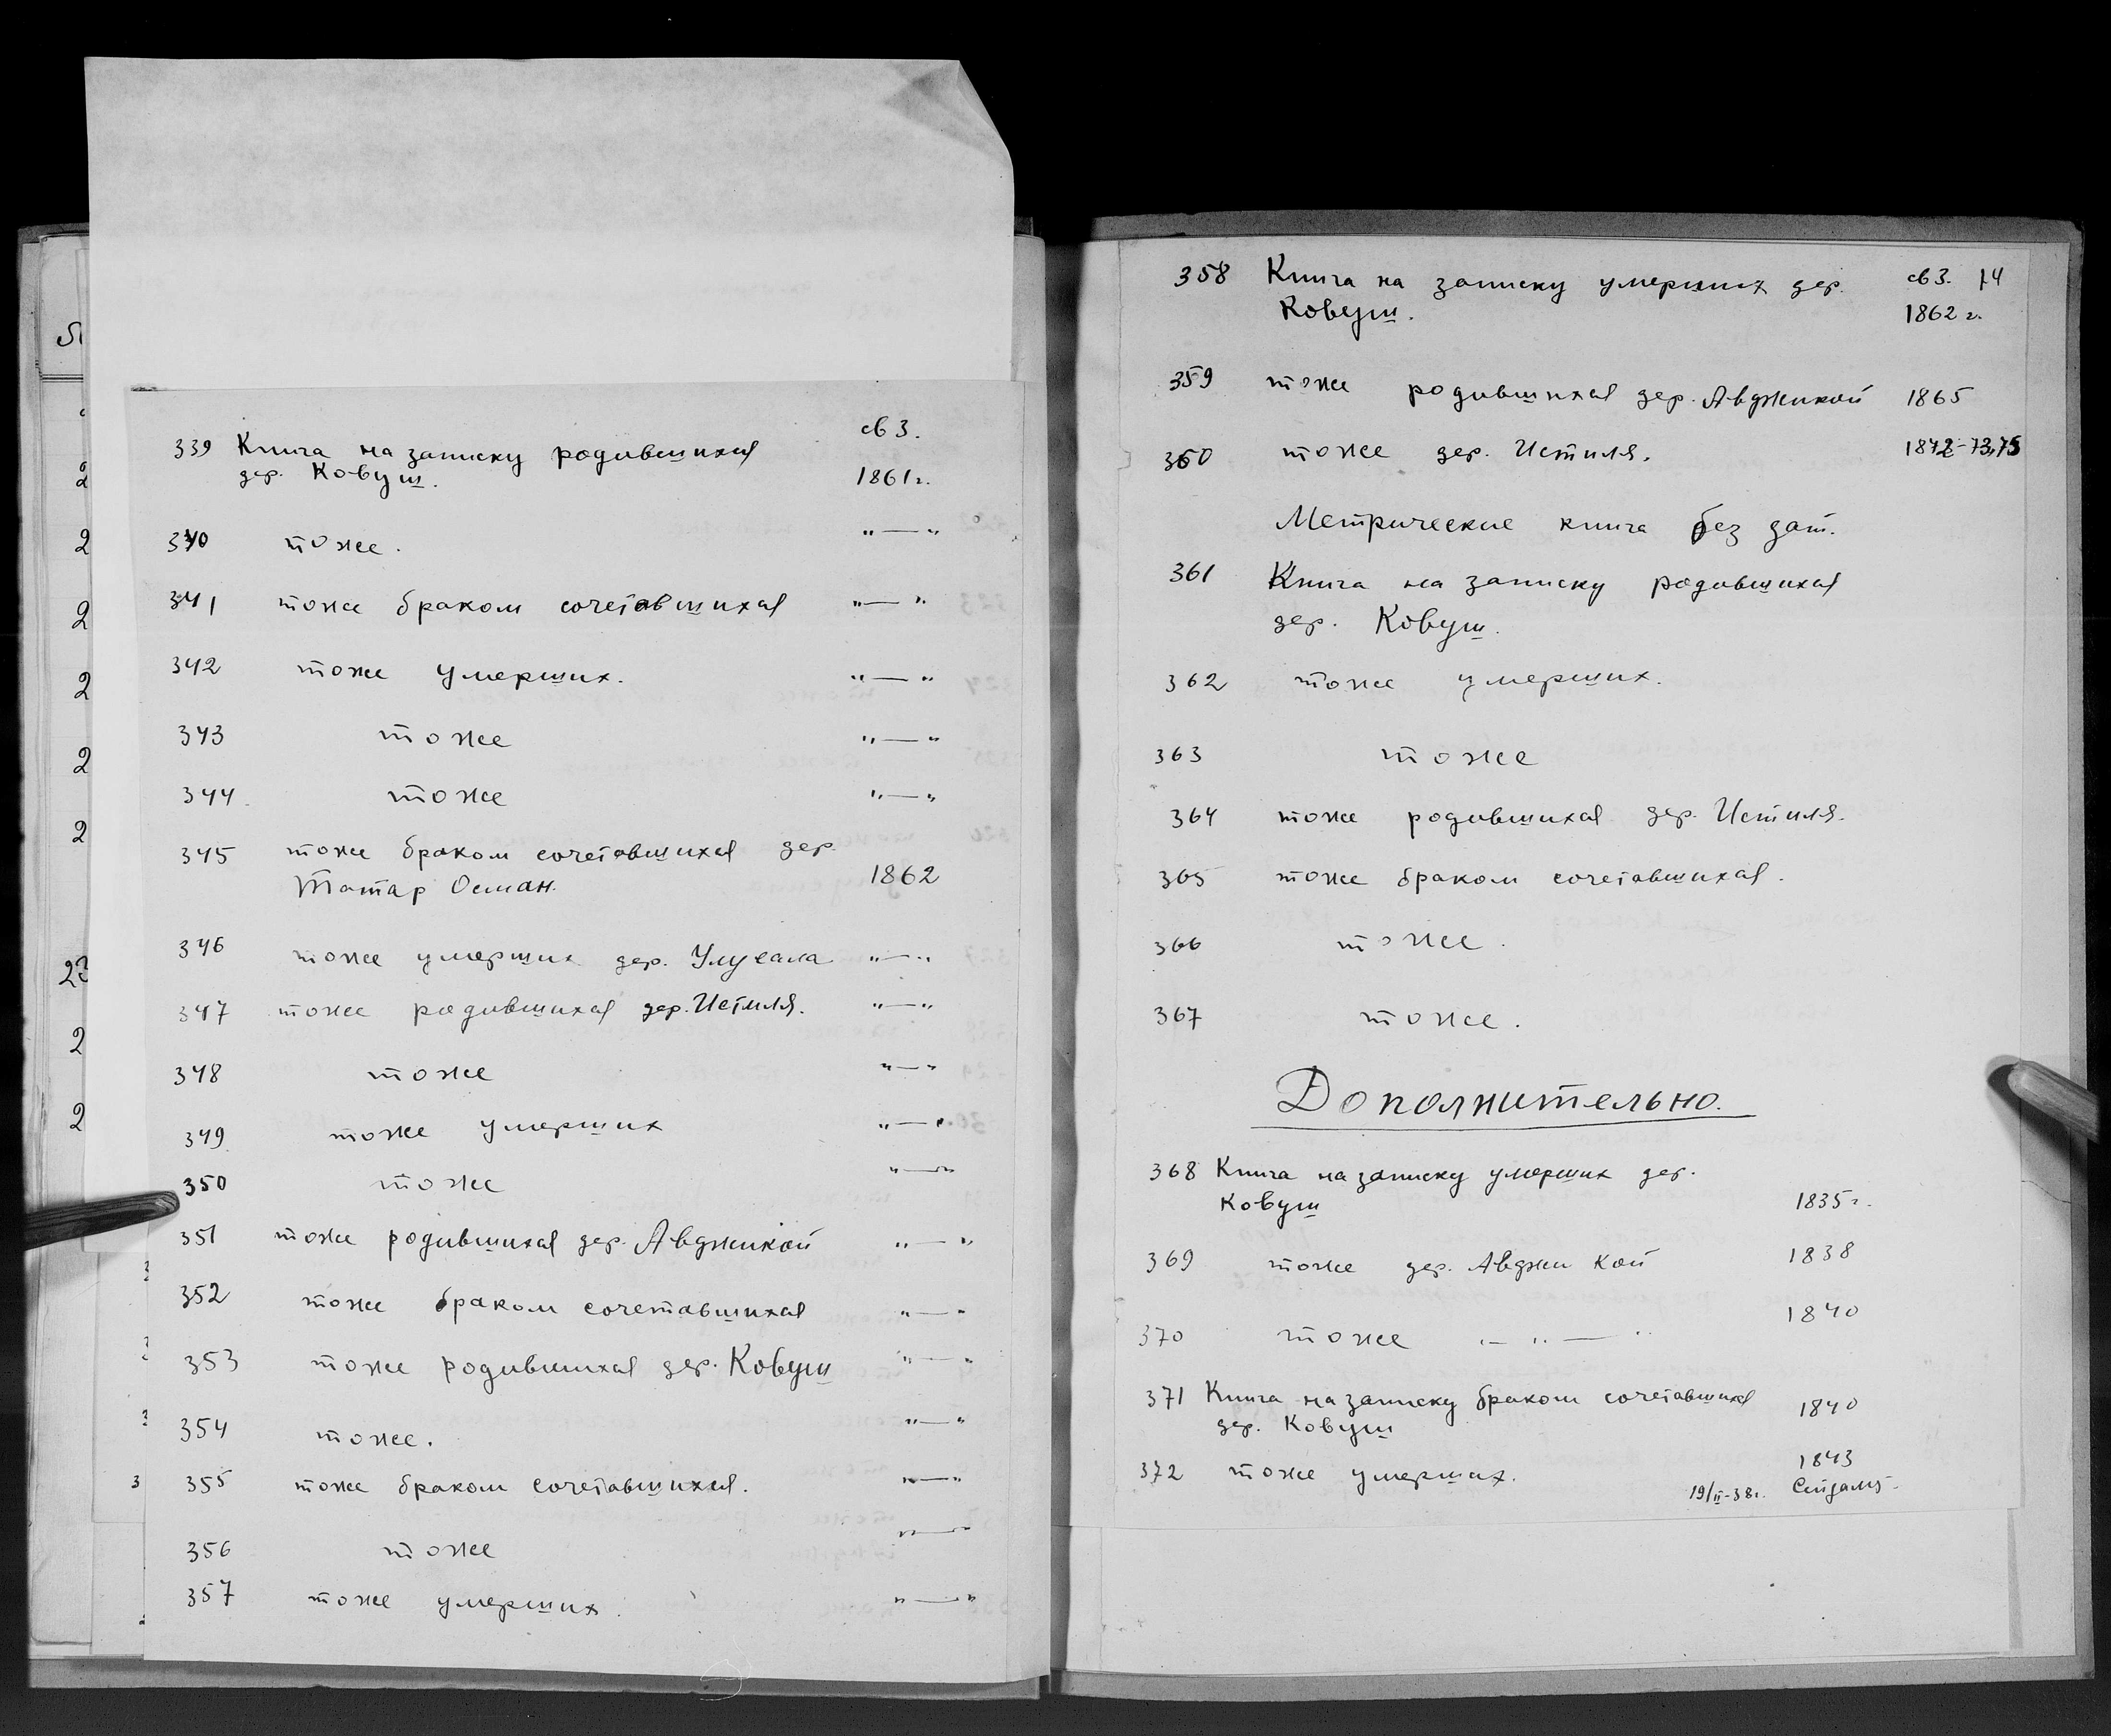 св 3.
339 Книга на записку родившихся
дер. Ковуш.
1861 г.
340 тоже. "—"
341 тоже браком сочетавшихся "—"
342 тоже умерших. "—"
343 тоже "—"
344. тоже "—"
345 тоже браком сочетавшихся дер.
Татар Осман. 1862
346 тоже умерших дер. Улусала "—"
347 тоже родившихся дер. Истиля. "—"
348 тоже "—"
349. тоже умерших "—"
350 тоже "—"
351 тоже родившихся дер. Авджикой "—"
352 тоже браком сочетавшихся "—"
353 тоже родившихся дер. Ковуш "—"
354 тоже. "—"
355 тоже браком сочетавшихся. "—"
356 тоже "—"
357 тоже умерших. "—"
358 Книга на записку умерших дер. св 3. 14
Ковуш. 1862 г.
359 тоже родившихся дер. Авджикой 1865
360 тоже дер. Истиля. 1872-73,75
Метрические книга без дат.
361 Книга на записку родившихся
дер. Ковуш.
362 тоже умерших.
363 тоже
364 тоже родившихся дер. Истиля.
365 тоже браком сочетавшихся.
366 тоже.
367 тоже.
Дополнительно.
368 Книга на записку умерших дер.
Ковуш 1835 г.
369 тоже дер. Авджи Кой 1838
370 тоже —"—" 1840
371 Книга на записку браком сочетавшихся
дер. Ковуш 1840
372 тоже умерших. 1843
19/II-38 г.